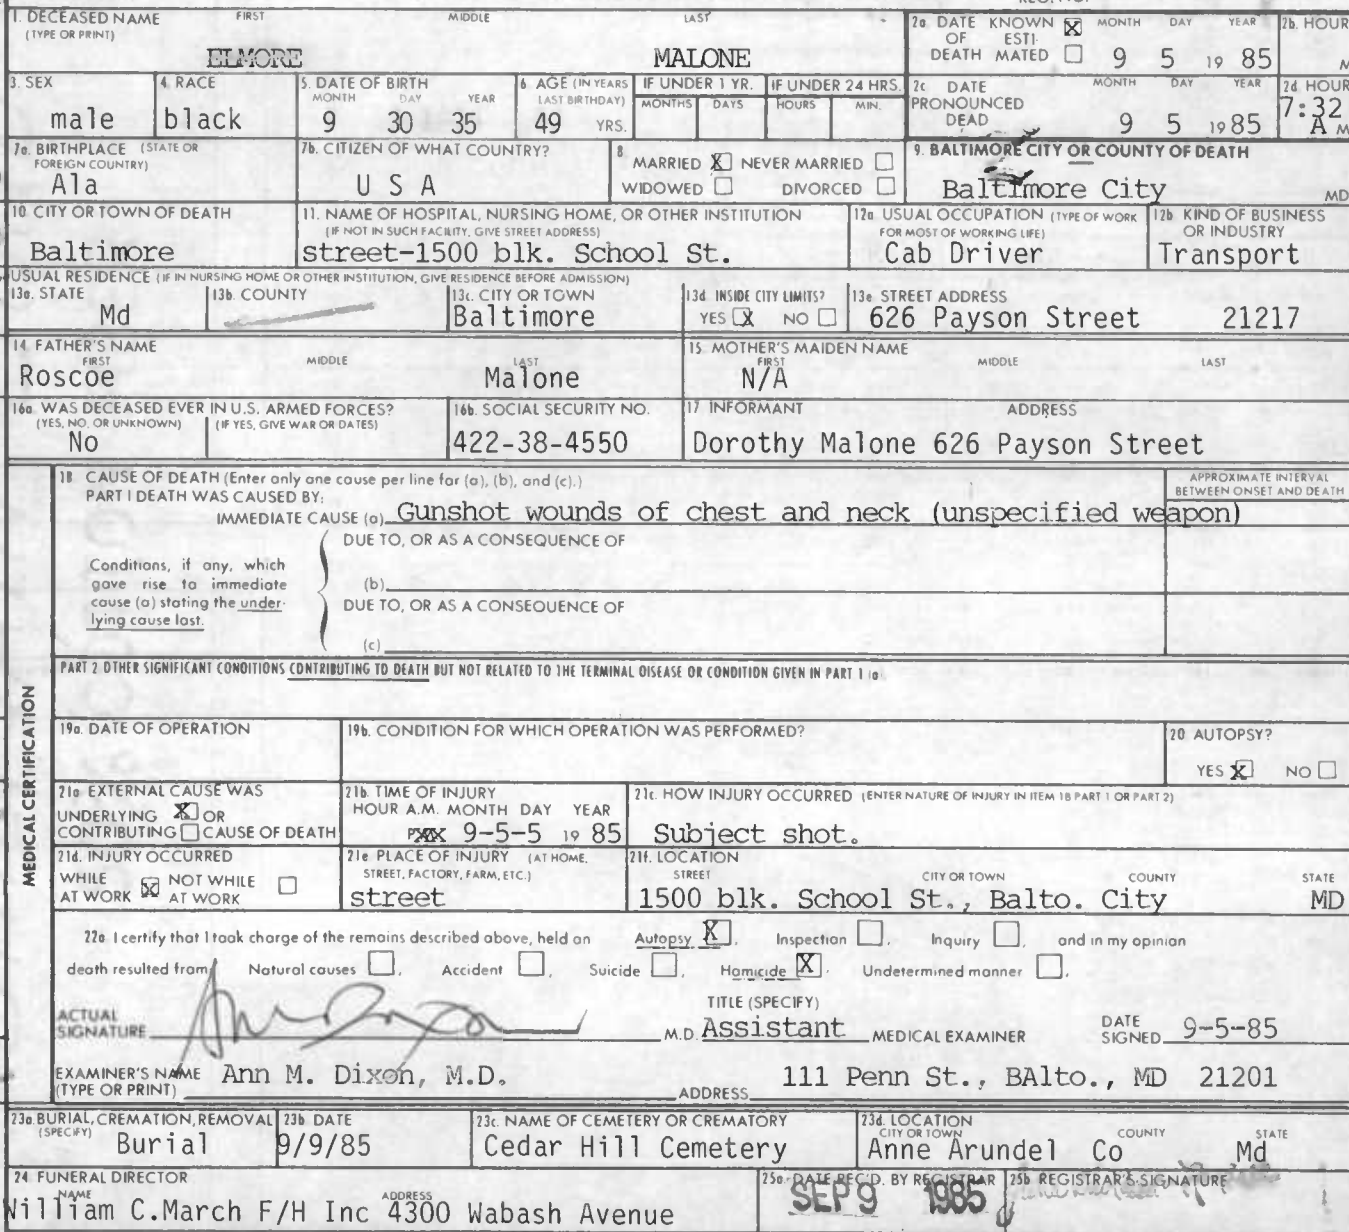 1. DECEASED NAME FIRST MIDDLE LAST
(TYPE OR PRINT)
ELMORE MALONE
2a DATE KNOWN X MONTH DAY YEAR
OF ESTI-
DEATH MATED 9 5 19 85
2b. HOUR
M
3. SEX
male
4. RACE
black
5. DATE OF BIRTH
MONTH DAY YEAR
9 30 35
6 AGE (IN YEARS
LAST BIRTHDAY)
49 YRS.
IF UNDER 1 YR.
MONTHS DAYS
IF UNDER 24 HRS.
HOURS MIN.
2c DATE MONTH DAY YEAR
PRONOUNCED
DEAD 9 5 1985
2d HOUR
7:32
A M
7a. BIRTHPLACE (STATE OR
FOREIGN COUNTRY)
Ala
7b. CITIZEN OF WHAT COUNTRY?
U S A
8
MARRIED X NEVER MARRIED
WIDOWED DIVORCED
9. BALTIMORE CITY OR COUNTY OF DEATH
Baltimore City MD
10 CITY OR TOWN OF DEATH
Baltimore
11. NAME OF HOSPITAL, NURSING HOME, OR OTHER INSTITUTION
(IF NOT IN SUCH FACILITY, GIVE STREET ADDRESS)
street-1500 blk. School St.
12a USUAL OCCUPATION (TYPE OF WORK
FOR MOST OF WORKING LIFE)
Cab Driver
12b. KIND OF BUSINESS
OR INDUSTRY
Transport
USUAL RESIDENCE (IF IN NURSING HOME OR OTHER INSTITUTION, GIVE RESIDENCE BEFORE ADMISSION)
13a. STATE
Md
13b. COUNTY
13c. CITY OR TOWN
Baltimore
13d INSIDE CITY LIMITS?
YES X NO
13e STREET ADDRESS
626 Payson Street 21217
14 FATHER'S NAME
FIRST MIDDLE LAST
Roscoe Malone
15. MOTHER'S MAIDEN NAME
FIRST MIDDLE LAST
N/A
16a WAS DECEASED EVER IN U.S. ARMED FORCES?
(YES, NO, OR UNKNOWN) (IF YES, GIVE WAR OR DATES)
No
16b. SOCIAL SECURITY NO.
422-38-4550
17 INFORMANT ADDRESS
Dorothy Malone 626 Payson Street
MEDICAL CERTIFICATION
18 CAUSE OF DEATH (Enter only one cause per line for (a), (b), and (c).)
PART I DEATH WAS CAUSED BY:
IMMEDIATE CAUSE (a) Gunshot wounds of chest and neck (unspecified weapon)
APPROXIMATE INTERVAL
BETWEEN ONSET AND DEATH
DUE TO, OR AS A CONSEQUENCE OF
Conditions, if any, which
gave rise to immediate
cause (a) stating the under-
lying cause last.
(b)
DUE TO, OR AS A CONSEQUENCE OF
(c)
PART 2 OTHER SIGNIFICANT CONDITIONS CONTRIBUTING TO DEATH BUT NOT RELATED TO THE TERMINAL DISEASE OR CONDITION GIVEN IN PART 1 (a)
19a. DATE OF OPERATION
19b. CONDITION FOR WHICH OPERATION WAS PERFORMED?
20 AUTOPSY?
YES X NO
21a EXTERNAL CAUSE WAS
UNDERLYING X OR
CONTRIBUTING CAUSE OF DEATH
21b. TIME OF INJURY
HOUR A.M. MONTH DAY YEAR
9-5-5 19 85
21c. HOW INJURY OCCURRED (ENTER NATURE OF INJURY IN ITEM 18 PART 1 OR PART 2)
Subject shot.
21d. INJURY OCCURRED
WHILE AT WORK X NOT WHILE AT WORK
21e PLACE OF INJURY (AT HOME,
STREET, FACTORY, FARM, ETC.)
street
21f. LOCATION
STREET CITY OR TOWN COUNTY STATE
1500 blk. School St., Balto. City MD
22a I certify that I took charge of the remains described above, held an Autopsy X, Inspection , Inquiry , and in my opinion
death resulted from Natural causes , Accident , Suicide , Homicide X. Undetermined manner .
TITLE (SPECIFY)
ACTUAL
SIGNATURE M.D. Assistant MEDICAL EXAMINER DATE
SIGNED 9-5-85
EXAMINER'S NAME Ann M. Dixon, M.D.
(TYPE OR PRINT) ADDRESS 111 Penn St., BAlto., MD 21201
23a. BURIAL, CREMATION, REMOVAL
(SPECIFY) Burial
23b DATE
9/9/85
23c. NAME OF CEMETERY OR CREMATORY
Cedar Hill Cemetery
23d. LOCATION
CITY OR TOWN COUNTY STATE
Anne Arundel Co Md
24 FUNERAL DIRECTOR
NAME ADDRESS
William C.March F/H Inc 4300 Wabash Avenue
25a. DATE REC'D. BY REGISTRAR
SEP 9 1985
25b REGISTRAR'S SIGNATURE